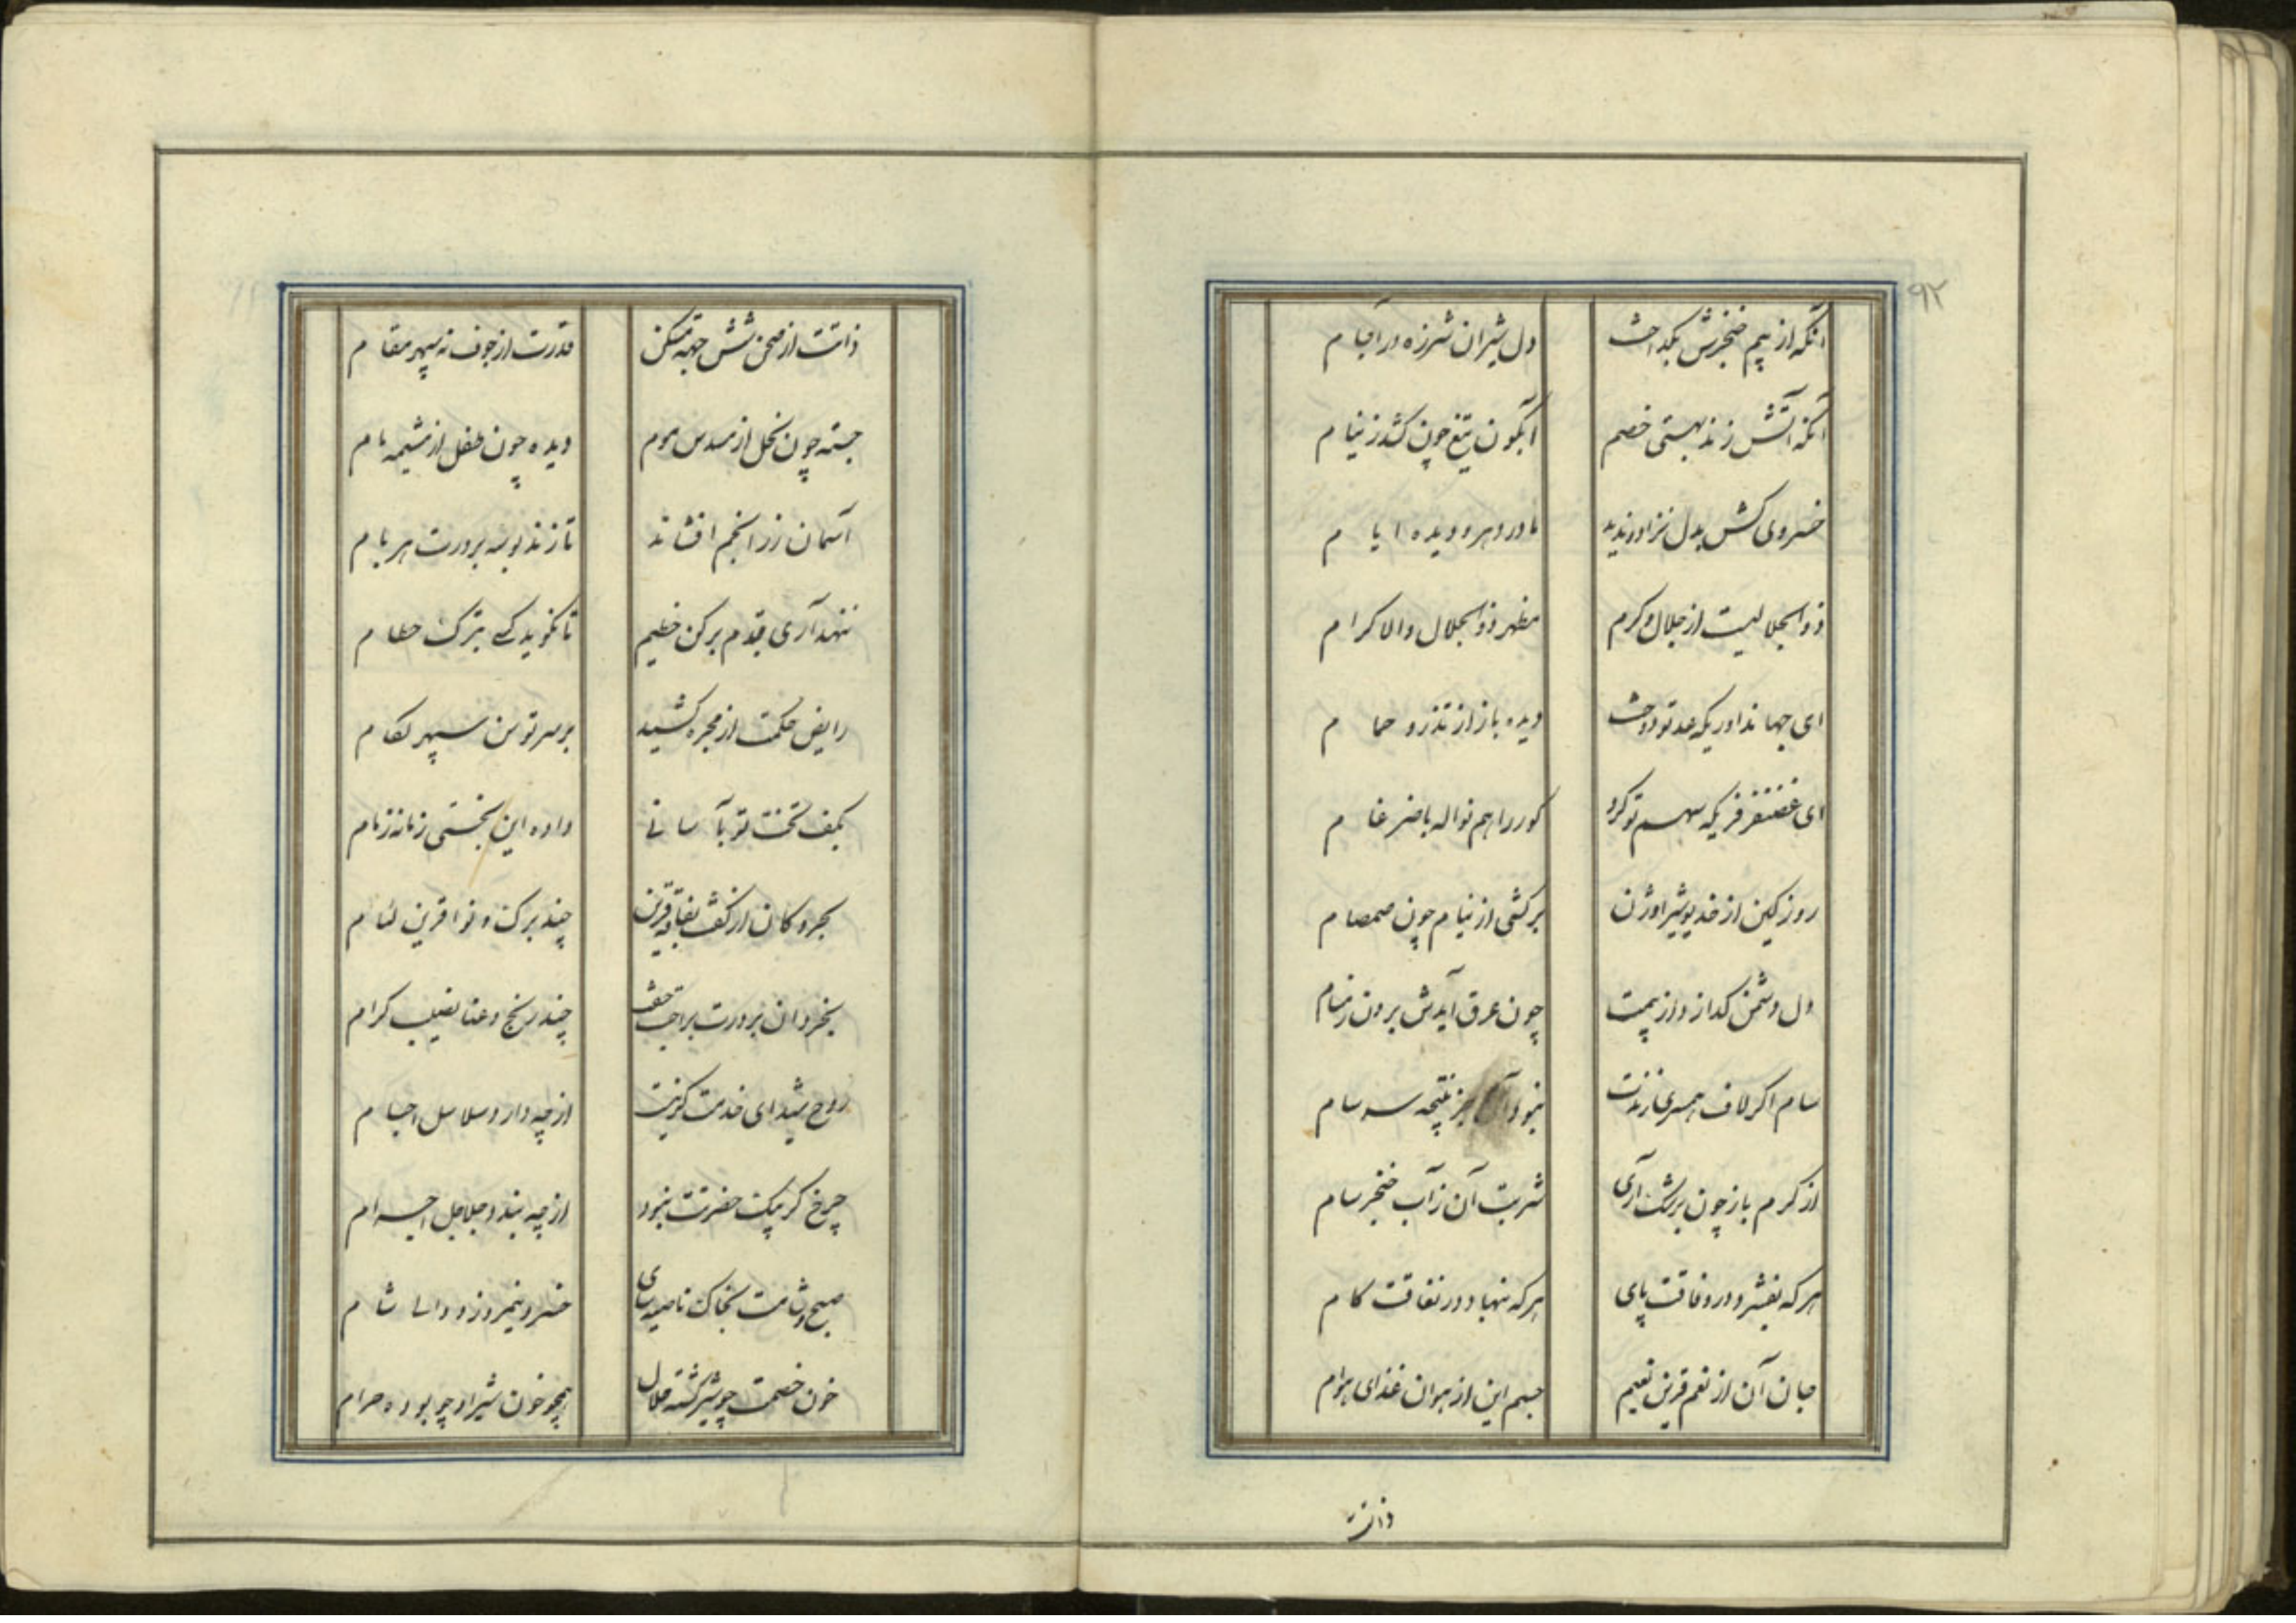 ۹۲
آنکه از بیم خنجرش بگداخت
دل شیران شرزه در آجام
آنکه آتش زند بهستی خصم
آبگون تیغ چون کشد ز نیام
خسروی کش بدل نزاد و ندید
مادر دهر و دیده ایام
ذوالجلالیست از جلال و کرم
مظهر ذوالجلال والاکرام
ای جهانداوریکه عدل تو دوخت
دیده باز از تذرو حمام
ای غضنفر فریکه سهم تو کرد
گور را هم نواله با ضرغام
روز کین از خدیو شیر اوژن
برکشی از نیام چون صمصام
دل دشمن گدازد از بیمت
چون عرق آیدش برون ز مسام
سام اگر لاف همسری زندت
نبود آن جز نتیجه سرسام
از کرم باز چون برشک آری
شربت آن ز آب خنجر سام
هر که بفشرد در وفاقت پای
هر که بنهاد در نفاقت کام
جان آن از نعم قرین نعیم
جسم این از هوان غذای هوام
ذاتت
ذاتت از صحن شش جهة مسکن
قدرت از جوف نه سپهر مقام
جسته چون نحل از مسدس موم
دیده چون طفل از مشیمه مام
آسمان زر انجم افشاند
تا زند بوسه بر درت هر بام
ننهد آری قدم برکن حطیم
تا نگوید کسی بترک حطام
رایض حکمت از مجره کشید
بر سر توسن سپهر لکام
بکف بخت تو بآسانی
داده این بختی زمانه زمام
بحر و کان از کفت بفاقه قرین
چند برک و نوا قرین لئام
بخردان بر درت براحت جفت
چند رنج و عنا نصیب کرام
روح شیدای خدمت گر نیست
از چه دارد سلاسل اجسام
چرخ گر پیک حضرتت نبود
از چه بندد جلاجل اجرام
صبح و شامت بخاک ناصیه سای
خسرو نیمروز و والی شام
خون خصمت چو شیر گشته حلال
همچو خون شیر او چو بوده حرام